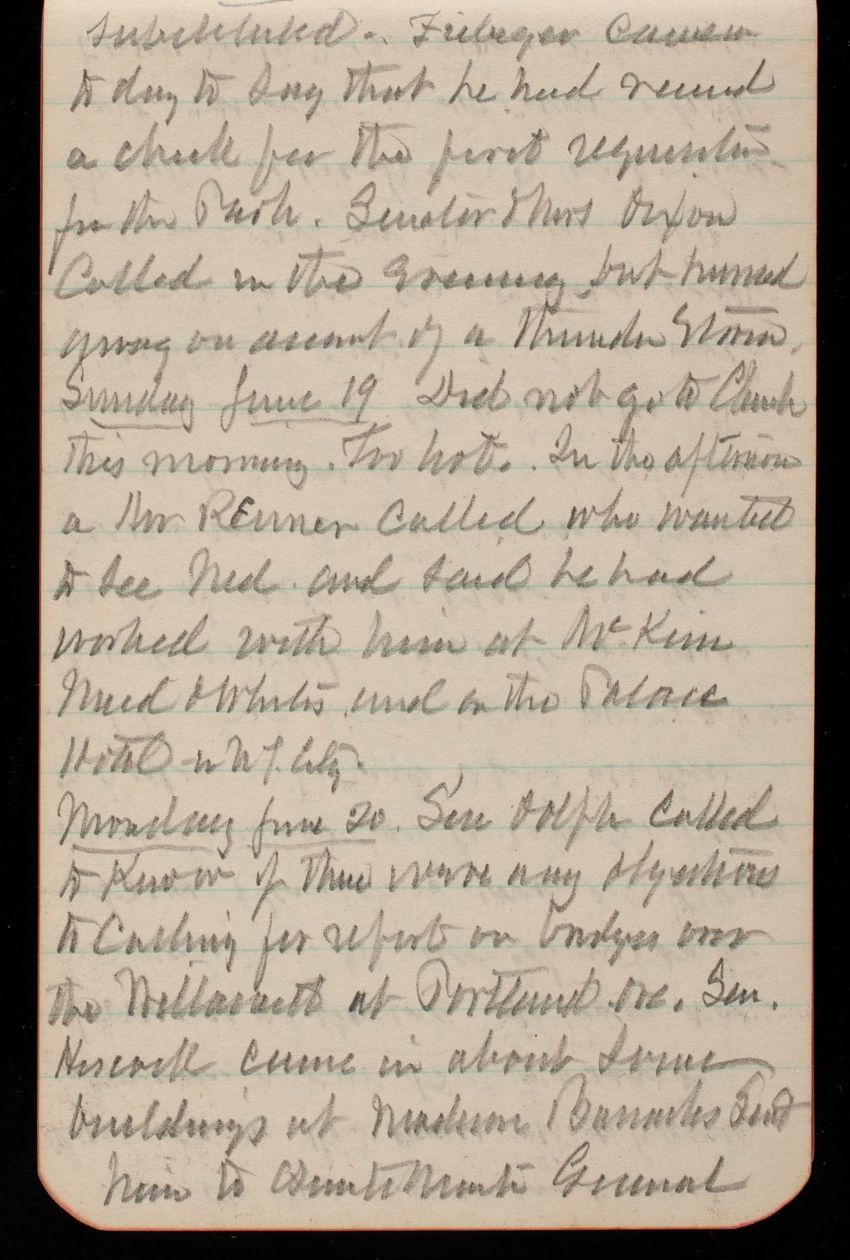 substituted. Fiebeger came in
to day to say that he had recieved
a check for the first requisition
for the Park. Senator & Mrs Dixon
Called in the Evening, but hurried
away on account of a Thunder Storm.
Sunday June 19 Did not go to Church
this morning. Too hot. In the afternoon
a Mr REimer Called who wanted
to see Ned. and said he had
worked with him at McKim
Mead & Whites and on the Palace
Hotel in N.Y. City.
Monday June 20. Sen Dolph Called
to Know if there were any objections
to Calling for report on bridges over
the Willamette at Portland Ore. Sen.
Hiscock came in about some
buildings at Madison Barracks Sent
him to Quarter Master General